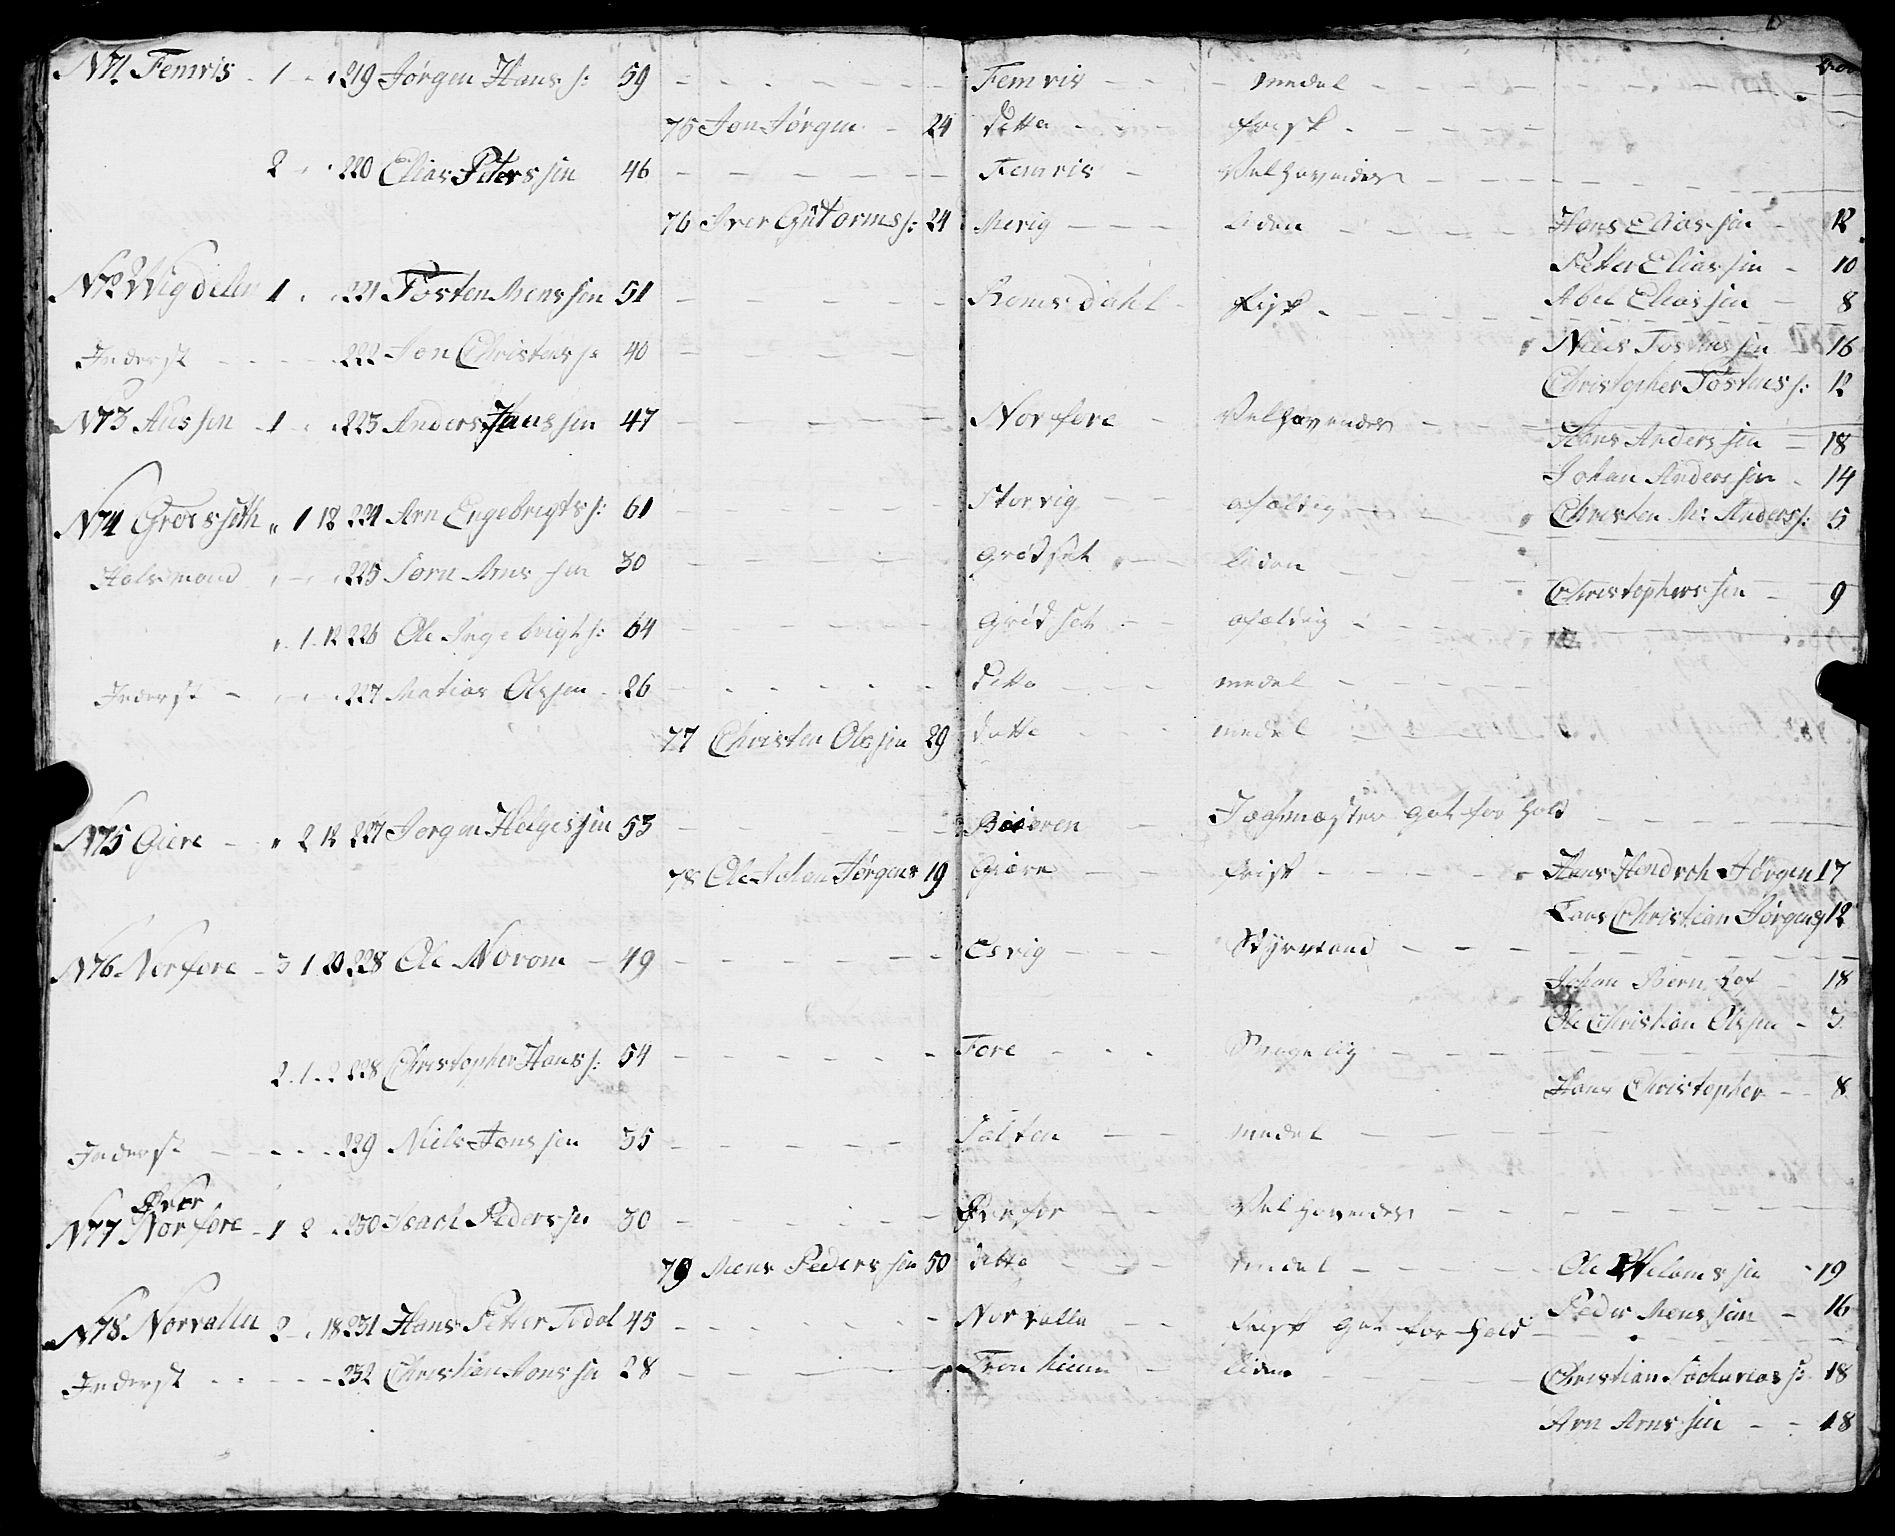 N71 Femris - 1 - - 219 Jørgen Hans s: 59 - - - Femris - - - medel - - -
75 Jon Jørgen - 24 ditto - - - frisk - - -
2 - - 220 Elias Peters sen 46 - - - Femris - Velhavendes - - -
76 Iver Gutorms s: 24 Merig - - - liden - - - Hans Elias sen - 12
Peter Elias sen - 10
N72 Wigdelen 1 - - 221 Tosten Mons sen 51 - - - Romsdahl - frisk - - - Abel Elias sen - 8
Inderst - - - 222 Jon Christens s: 40 - - - Niels Tostens sen 16
Christopher Tostens s: 12
N73 Aussen - 1 - - 223 Anders Hans sen 47 - - - Norfore - Velhavendes - - - Hans Anders sen - 18
Johan Anders sen - 14
N74 Groes seth " 1 12 224 Arn Engebrigts s: 61 - - - Storvig - - afældig - - - Christen M: Anders s: 5
Halvmand - - - 225 Sørn Arns sen 30 - - - Grødset - - liden - - - Christophers sen - 9
" 1 12 226 Ole Ingebrigt s: 64 - - - Grødset - - afældig - - -
Inderst - - - 227 Matias Ols sen - 26 - - - ditto - - - medel - - -
77 Christen Ols sen 29 ditto - - - medel
N75 Giere - - " 2 12 227 Jørgen Helges sen 53 - - - - got for hold - - -
78 Ole Johan Jørgens 19 Giære - - frisk - - - Hans Hendrch Jørgen 17
Lars Christian Jørgens 12
N76 Norfore - 3 1 20 228 Ole Norom - 49 - - - Esvig - - - Styrmand - - -
Johan Bern hot - 18
Ole Christian Ols sen - 3
2 - 1 - 2 228 Christopher Hans s: 54 - - - Fore - - - - - -
Hans Christopher - - 8
Inderst - - - 229 Niels Jons sen 35 - - - Salten - - medel - - -
Øvier
N77 Norfore - 1 2 - 230 Isach Peders sen 30 - - - - - Velhavendes - - -
79 Mons Peders sen 50 ditto - - - medel - - - Ole Wiloms sen - 19
N78 Norvalla 2 - 18 231 Hans Petter Todal 45 - - - Norvalla - - frisk got for hold - - - Peder Mons sen - 16
Inderst - - - 232 Christian Jons sen 28 - - - Tronhiem - liden - - - Christian Sacharias s: 18
Arn Arns sen - - 18